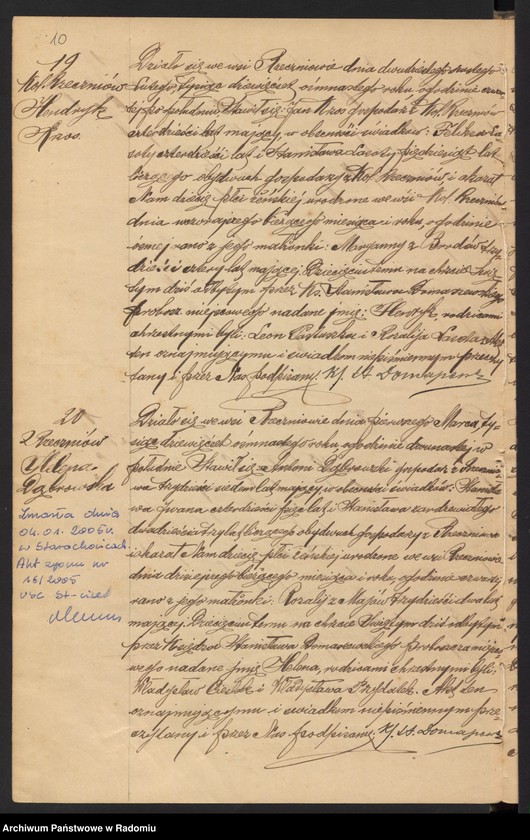 10
19
Kol. Rzeczniów
Hendryk
Kzos.
Działo się we wsi Rzeczniowie dnia dwudziestego
Lutego tysiąc dziewięćset ósmnastego roku, o godzinie
po południu. Stawił się: Jan Kzos gospodarz z Kol. Rzeczniów
czterdzieści lat mający, w obecności świadków: Feliksa La-
soty czterdzieści lat i Stanisława Lasoty pięćdziesiąt lat
liczącego obydwuch gospodarzy z Kol. Rzeczniów i okazał
Nam dziecię płci żeńskiej urodzone we wsi Kol. Rzeczniów
dnia wczorajszego bieżącego miesiąca i roku, o godzinie
rano z jego małżonki: Maryanny z Brodów trzy-
dzieści cztery lat mającej. Dziecięciu temu na chrzcie Świę-
tym dziś odbytym przez Ks. Stanisława Domaszewskiego
proboszcza miejscowego nadane imię: Hendryk, rodzicami
chrzestnymi byli: Leon Pastuszka i Rozalija Lasota. Akt
ten oznajmującemu i świadkom niepiśmiennym przeczy-
tany i przez Nas podpisany. Kj. St. Domaszew
20
2 Rzeczniów
Helena
Dąbrowska
Zmarła dnia
04.01.2005 r.
w Starachowicach
Akt zgonu nr
15/2005
USC St-wice
Działo się we wsi Rzeczniowie dnia pierwszego Marca, ty-
siąc dziewięćset osmnastego roku, o godzinie dwunastej w
południe. Stawił się Antoni Dąbrowski gospodarz z Rzecznio-
wa trzydzieści siedem lat mający, w obecności świadków: Stanisła-
wa Gwana czterdzieści pięć lat i Stanisława
dwadzieścia trzy lat liczącego obydwuch gospodarzy z Rzeczniowa
i okazał Nam dziecię płci żeńskiej urodzone we wsi Rzeczniowie
dnia dzisiejszego bieżącego miesiąca i roku, o godzinie czwartej
rano z jego małżonki: Rozalij z Majów trzydzieści dwa lat
mającej. Dziecięciu temu na chrzcie Świętym dziś odbytym
przez Księdza Stanisława Domaszewskiego proboszcza miejsco-
wego nadane imię Helena, rodzicami chrzestnymi byli:
Władysław Cieślak i Władysława Drydalek. Akt ten
oznajmującemu i świadkom niepiśmiennym prze-
czytany i przez Nas podpisany. Kj. St. Domaszew
Archiwum Państwowe w Radomiu